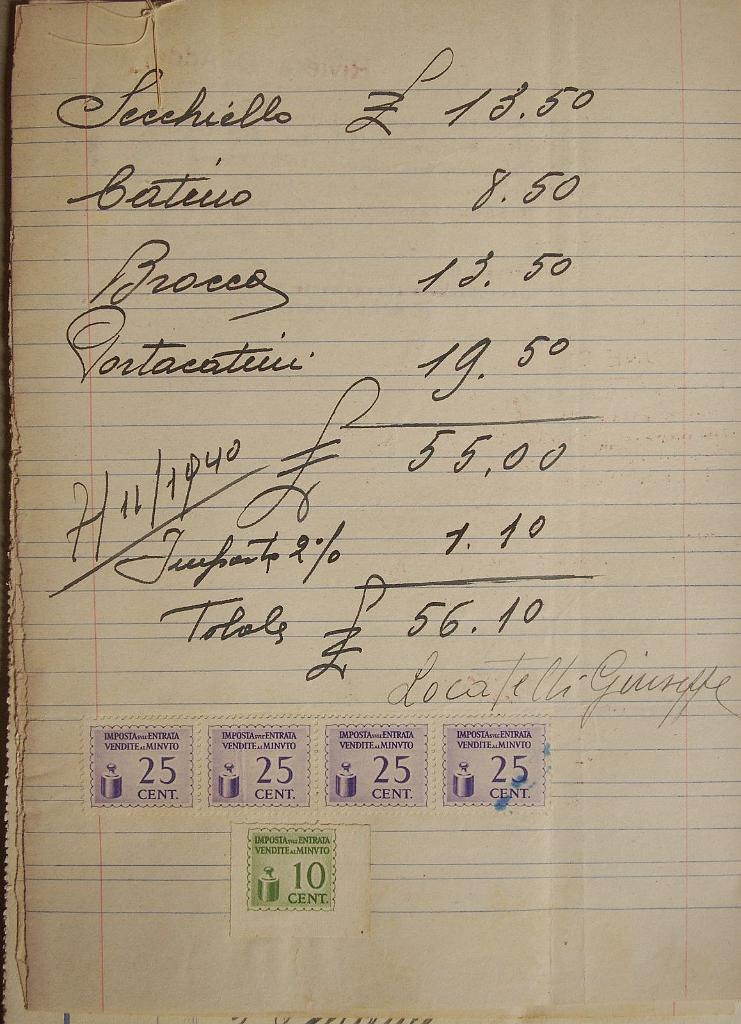 Secchiello £ 13.50
Catino 8.50
Brocca 13.50
Portacatini 19.50
£ 55,00
7/11/1940
Imposta 2% 1.10
Totale £ 56.10
Locatelli Giuseppe
IMPOSTA SULL' ENTRATA VENDITE AL MINVTO 25 CENT.
IMPOSTA SULL' ENTRATA VENDITE AL MINVTO 25 CENT.
IMPOSTA SULL' ENTRATA VENDITE AL MINVTO 25 CENT.
IMPOSTA SULL' ENTRATA VENDITE AL MINVTO 25 CENT.
IMPOSTA SULL' ENTRATA VENDITE AL MINVTO 10 CENT.